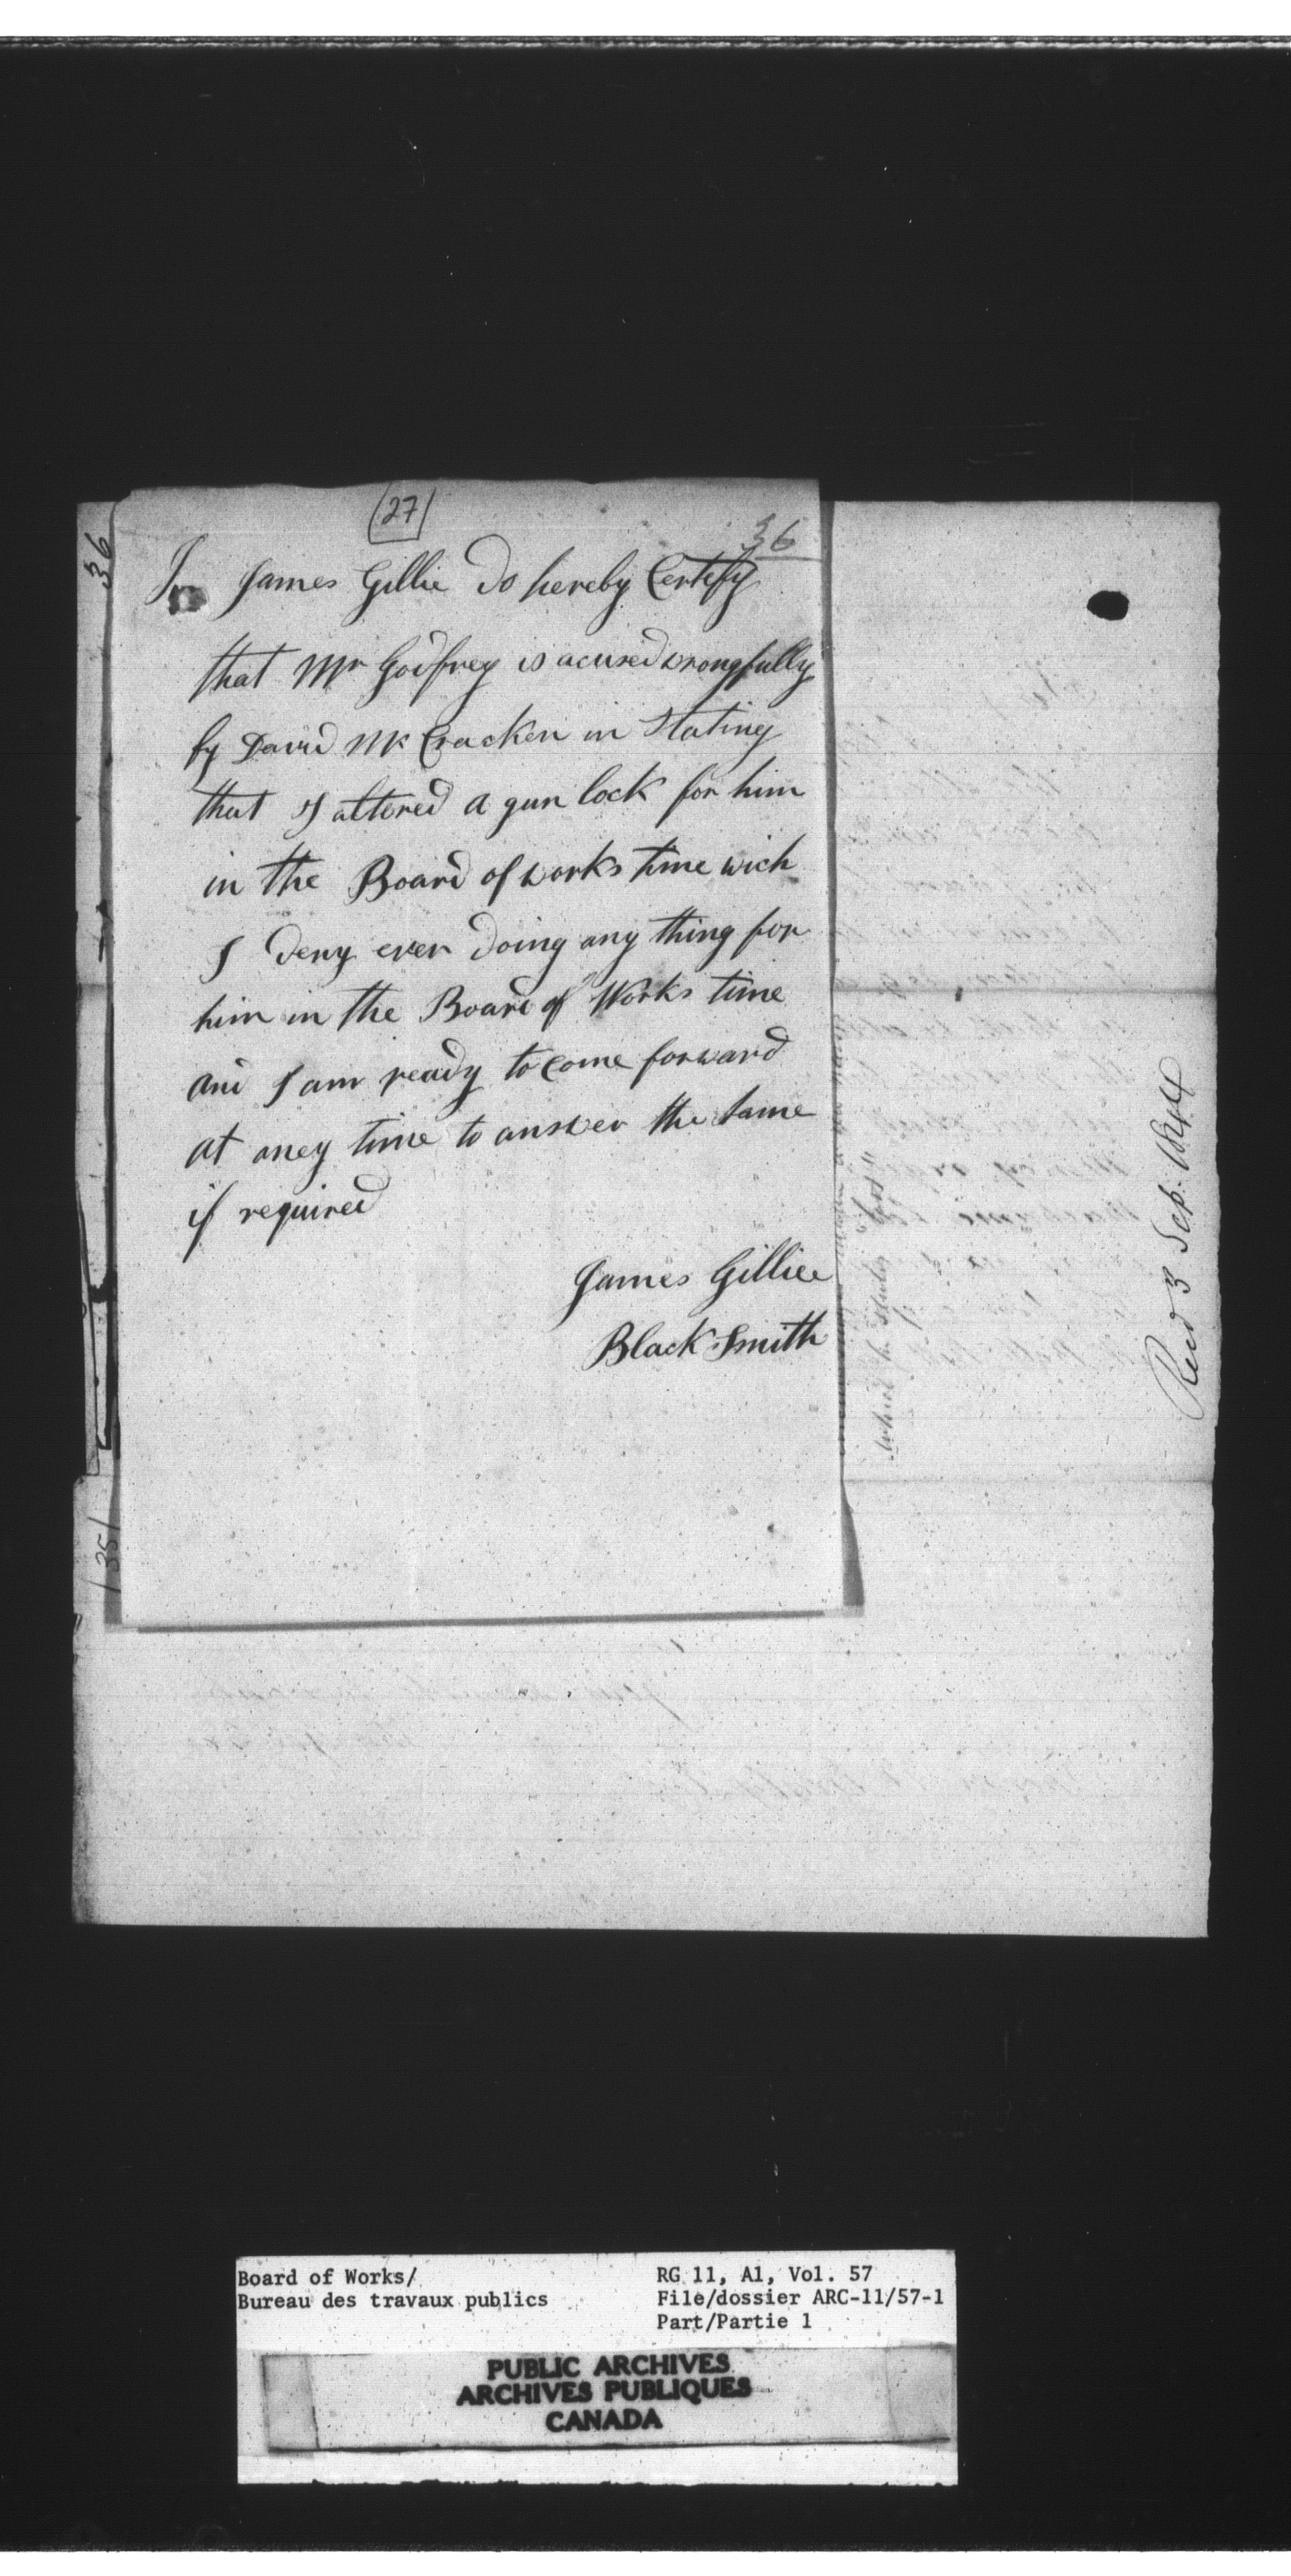 27
36
36
I James Gillie do hereby Certefy
that Mr Godfrey is acused wrongfully
by David Mc Cracken in Stating
that I altered a gun lock for him
in the Board of works time wich
I deny ever doing any thing for
him in the Board of Works time
and I am ready to come forward
at aney time to answer the Same
if required
James Gilliee
Black Smith
35
Recd 3 Sep. 1844
Board of Works/
Bureau des travaux publics
RG 11, A1, Vol. 57
File/dossier ARC-11/57-1
Part/Partie 1
PUBLIC ARCHIVES
ARCHIVES PUBLIQUES
CANADA